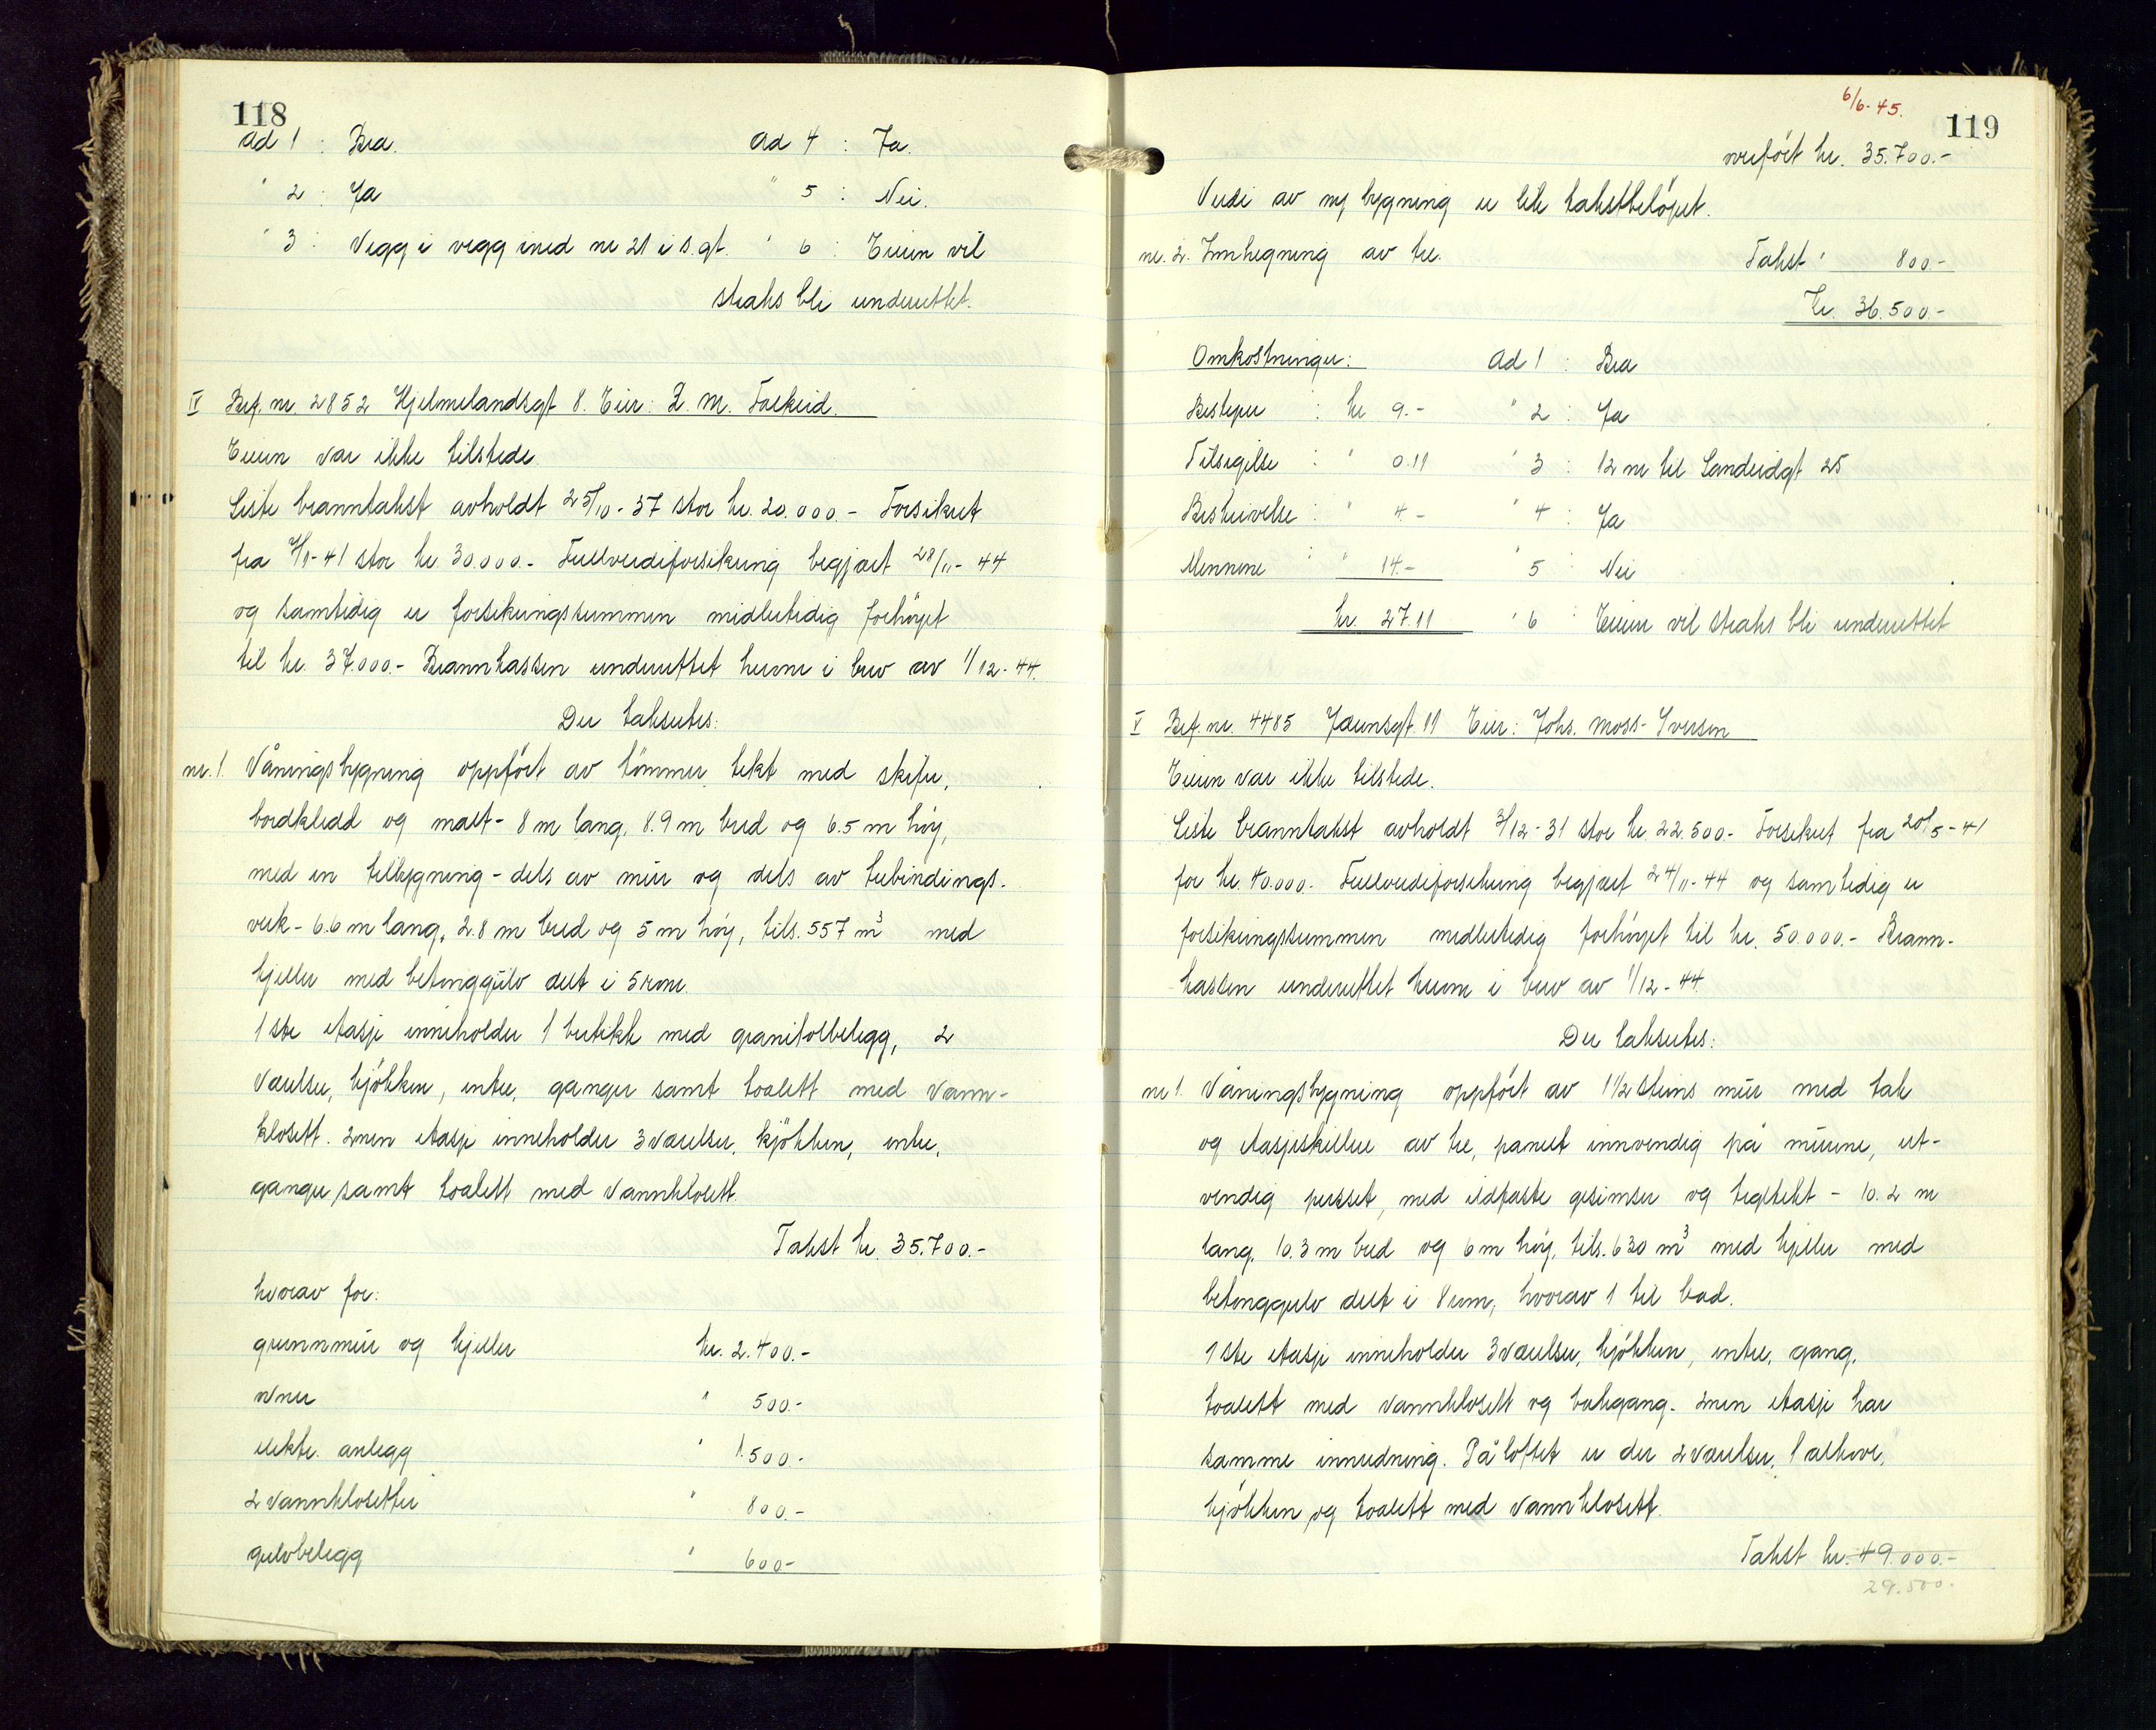 118
Ad 1 : Bra. Ad 4 : Ja.
" 2 : Ja " 5 : Nei.
" 3 : Vegg i vegg med nr 21 i s. gt. " 6 : Eieren vil
straks bli underrettet.
IV Brf. nr. 2852 Hjelmelandsgt 8. Eier: L. M. Torkeid.
Eieren var ikke tilstede.
Siste branntakst avholdt 25/10-37 stor kr. 20.000.- Forsikret
fra 7/1-41 stor kr. 30.000.- Fullverdiforsikring begjært 28/11-44
og samtidig er forsikringssummen midlertidig forhöyet
til kr. 37.000.- Brannkassen underrettet herom i brev av 1/12-44.
Der takseres:
nr. 1. Våningsbygning oppfört av tömmer, tekt med skifer,
bordkledd og malt - 8 m lang, 8.9 m bred og 6.5 m höy,
med en tilbygning - dels av mur og dels av utbindings-
verk - 6.6 m lang, 2.8 m bred og 5 m höy, tils. 557 m³ med
kjeller med betonggulv delt i 5 rom.
1ste etasje inneholder 1 butikk med granitolbelegg, 2
værelser, kjökken, entre, ganger samt toalett med vann-
klosett. 2nen etasje inneholder 3 værelser, kjökken, entre,
ganger samt toalett med vannklosett.
Takst kr. 35.700.-
hvorav for:
grunnmur og kjeller kr. 2.400.-
ovner " 500.-
elektr. anlegg " 1.500.-
2 vannklosetter " 800.-
gulvbelegg " 600.-
6/6-45.
119
overfört kr. 35.700.-
Verdi av ny bygning er lik takstbelöpet.
nr. 2. Innhegning av tre. Takst " 800.-
Kr. 36.500.-
Omkostninger: Ad 1 : Bra
Bestyrer : kr 9.- " 2 : Ja
Tilsigelse : " 0.11 " 3 : 12 m til Sandeidgt 25
Beskrivelse : " 4.- " 4 : Ja
Mennene : " 14.- " 5 : Nei
kr. 27.11 " 6 : Eieren vil straks bli underrettet
V Brf. nr. 4485 Jærensgt. 11 Eier: Johs. Moss-Iversen
Eieren var ikke tilstede.
Siste branntakst avholdt 3/12-31 stor kr. 22.500.- Forsikret fra 20/5-41
for kr. 40.000.- Fullverdiforsikring begjært 24/11-44 og samtidig er
forsikringssummen midlertidig forhöyet til kr. 50.000.- Brann-
kassen underrettet herom i brev av 1/12-44.
Der takseres:
nr 1. Våningsbygning oppfört av 1 1/2 steins mur med tak
og etasjeskiller av tre, panelt innvendig på murene, ut-
vendig pusset, med ildfaste gesimser og teglstekt - 10.2 m
lang, 10.3 m bred og 6 m höy, tils. 630 m³ med kjeller med
betonggulv delt i 8 rom, hvorav 1 til bad.
1ste etasje inneholder 3 værelser, kjökken, entre, gang,
toalett med vannklosett og bakgang. 2nen etasje har
samme innredning. På loftet er der 2 værelser, 1 alkove,
kjökken og toalett med vannklosett.
Takst kr. 49.000.-
29.500.